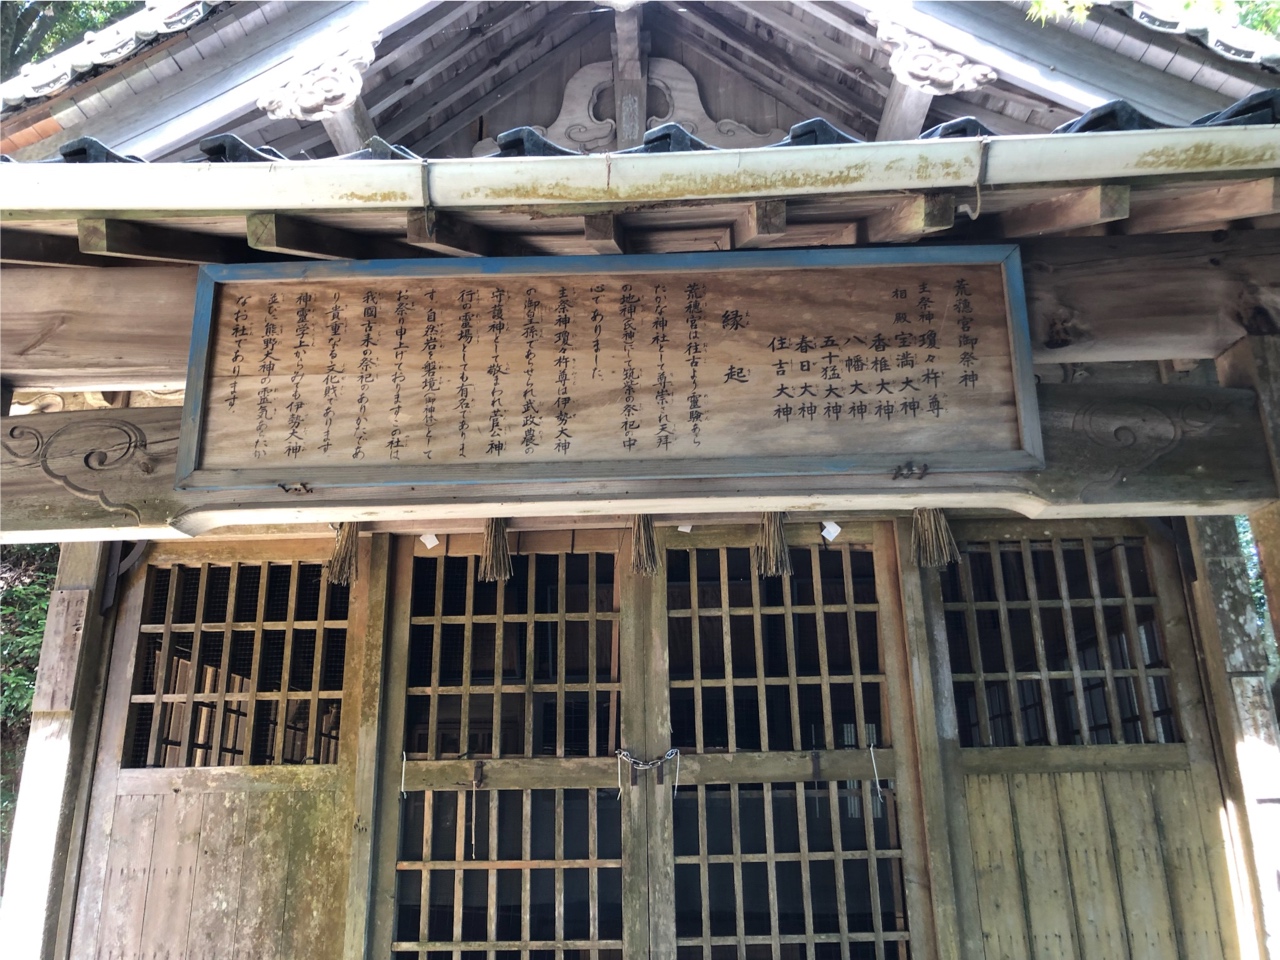 荒穂宮御祭神
主祭神 瓊々杵尊
相殿 宝満大神
香椎大神
八幡大神
五十猛大神
春日大神
住吉大神
縁起
荒穂宮は往古より霊験あら
たかな神社として尊崇され天拝
の地神氏神にして筑紫の祭祀の中
心でありました
主祭神瓊々杵尊は伊勢大神
の御皇孫であらせられ武政農の
守護神として敬まわれ菅公神
行の霊場としても有名でありま
す 自然岩を磐境(御神体)として
お祭り申上げております この社は
我國古来の祭祀のありかたであ
り貴重なる文化財であります
神霊学上からみても伊勢大神
並を 熊野大神の霊気あらたか
なお社であります